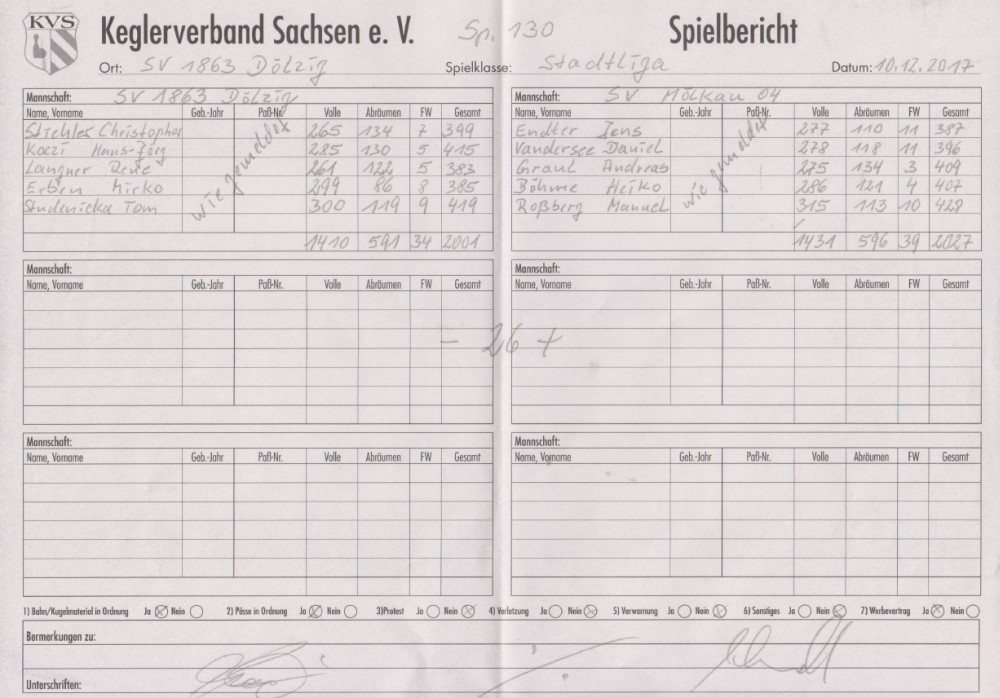 KVS Keglerverband Sachsen e. V. Sp. 130 Spielbericht
Ort: SV 1863 Dölzig Spielklasse: Stadtliga Datum: 10.12.2017
Mannschaft: SV 1863 Dölzig
Name, Vorname Geb.-Jahr Paß-Nr. Volle Abräumen FW Gesamt
Christopher 265 134 7 399
Koczi Hans-Jörg 285 130 5 415
Langner Rene 261 122 5 383
Erben Mirko 299 86 8 385
Studenicka Tom 300 119 9 419
wie gemeldet
1410 591 34 2001
Mannschaft: SV Mölkau 04
Name, Vorname Geb.-Jahr Paß-Nr. Volle Abräumen FW Gesamt
Endter Jens 277 110 11 387
Vandersee Daniel 278 118 11 396
Graul Andreas 275 134 3 409
Böhme Heiko 286 121 4 407
Roßberg Manuel 315 113 10 428
wie gemeldet
1431 596 39 2027
Mannschaft:
Name, Vorname Geb.-Jahr Paß-Nr. Volle Abräumen FW Gesamt
Mannschaft:
Name, Vorname Geb.-Jahr Paß-Nr. Volle Abräumen FW Gesamt
- 26 +
Mannschaft:
Name, Vorname Geb.-Jahr Paß-Nr. Volle Abräumen FW Gesamt
Mannschaft:
Name, Vorname Geb.-Jahr Paß-Nr. Volle Abräumen FW Gesamt
1) Bahn/Kugelmaterial in Ordnung Ja Nein 2) Pässe in Ordnung Ja Nein 3)Protest Ja Nein 4) Verletzung Ja Nein 5) Verwarnung Ja Nein 6) Sonstiges Ja Nein 7) Werbevertrag Ja Nein
Bermerkungen zu:
Unterschriften: